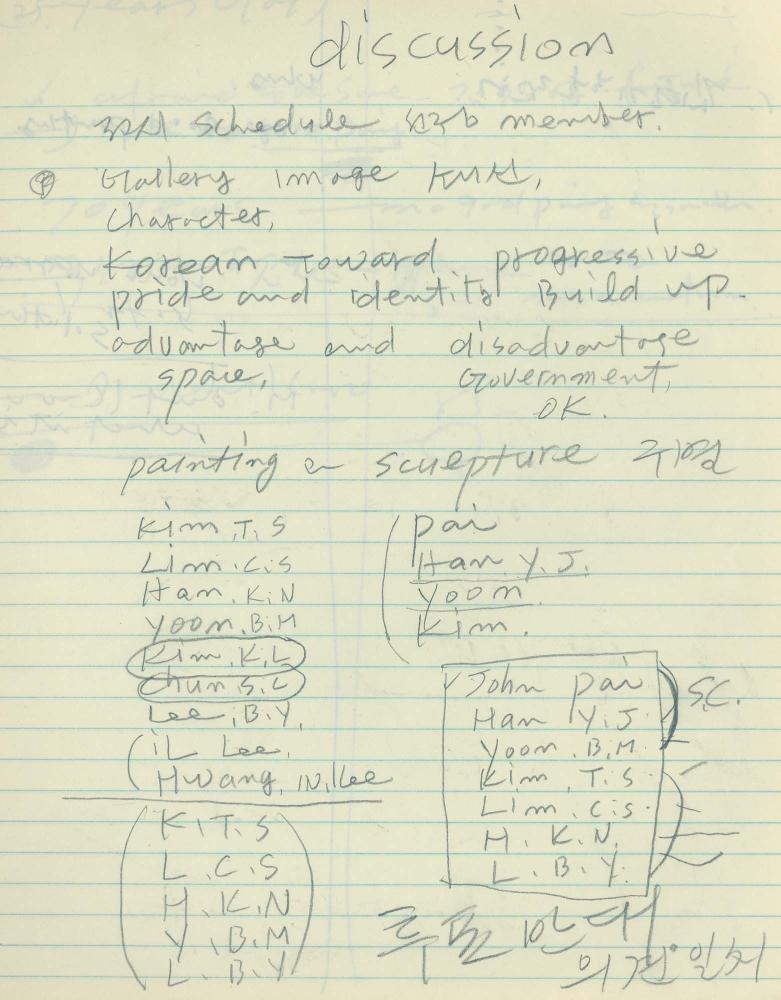 discussion
전시 schedule 선정 member.
Gallery image 쇄신,
character,
Korean toward progressive
pride and identity Build up.
advantage and disadvantage
space, Government,
OK.
painting & sculpture 구별
Kim, T, S
Lim, C, S
Han, K, N
Yoon, B, M
Kim, K, L
Chun, S, L
Lee, B, Y,
iL Lee,
Hwang, IN, Kee
K, T, S
L, C, S
H, K, N
Y, B, M
L, B, Y
Pai
Han, Y, J.
Yoon
Kim.
John Pai
Han Y, J.
Yoon, B, M.
Kim, T, S
Lim, C, S.
H, K, N,
L, B, Y.
S.C.
투표 반대
의견 일치